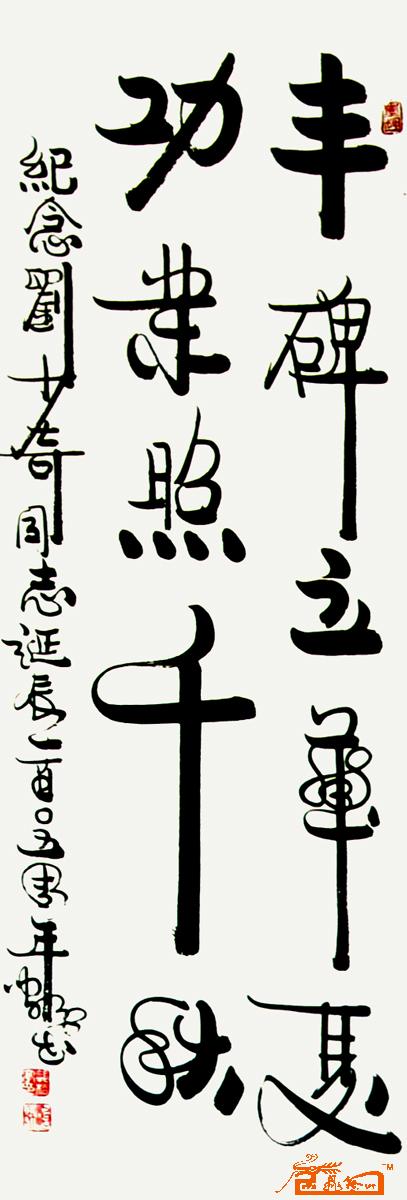 丰碑立華夏
功業照千秋
紀念劉少奇同志誕辰一百○五周年